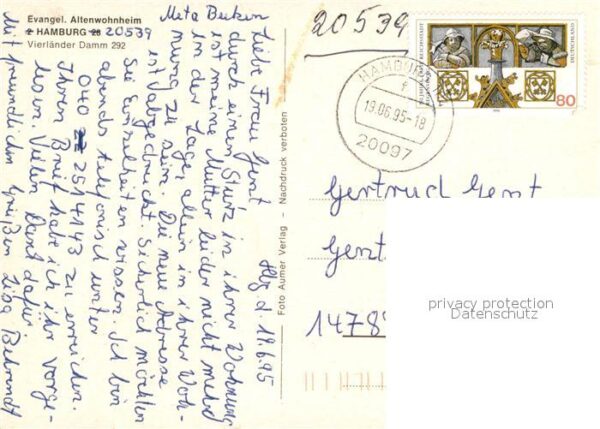 Evangel. Altenwohnheim
2 HAMBURG 28 20539
Vierländer Damm 292
Meta Behn
Hbg. d. 19.6.95
Liebe Frau Genz
durch einen Sturz in ihrer Wohnung
ist meine Mutter leider nicht mehr
in der Lage, allein in ihrer Woh-
nung zu sein. Die neue Adresse
ist abgedruckt. Sicherlich möchten
Sie Einzelheiten wissen. Ich bin
abends telefonisch unter
040 2514143 zu erreichen.
Ihren Brief habe ich ihr vorge-
lesen. Vielen Dank dafür
Mit freundlichen Grüßen Lisa Behrendt
Foto Aumer Verlag - Nachdruck verboten
20539
HAMBURG
f
19.06.95-18
20097
DEUTSCHLAND
80
Gertrud Genz
Genz
1478
privacy protection
Datenschutz